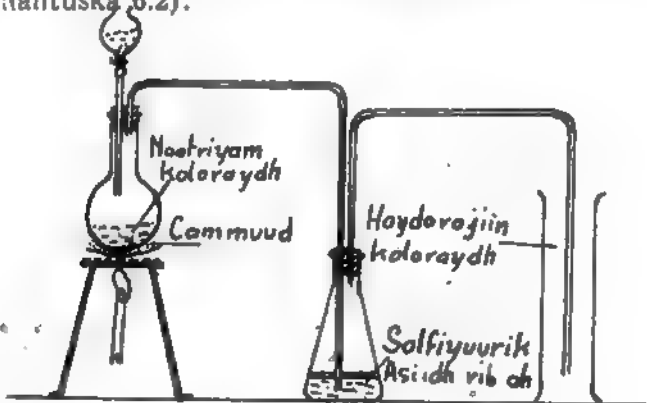 6.2).
Nootriyam
koloraydh
Cammuud
Haydarojiin
koloraydh
Salfiyuurik
Asiidh rib ah